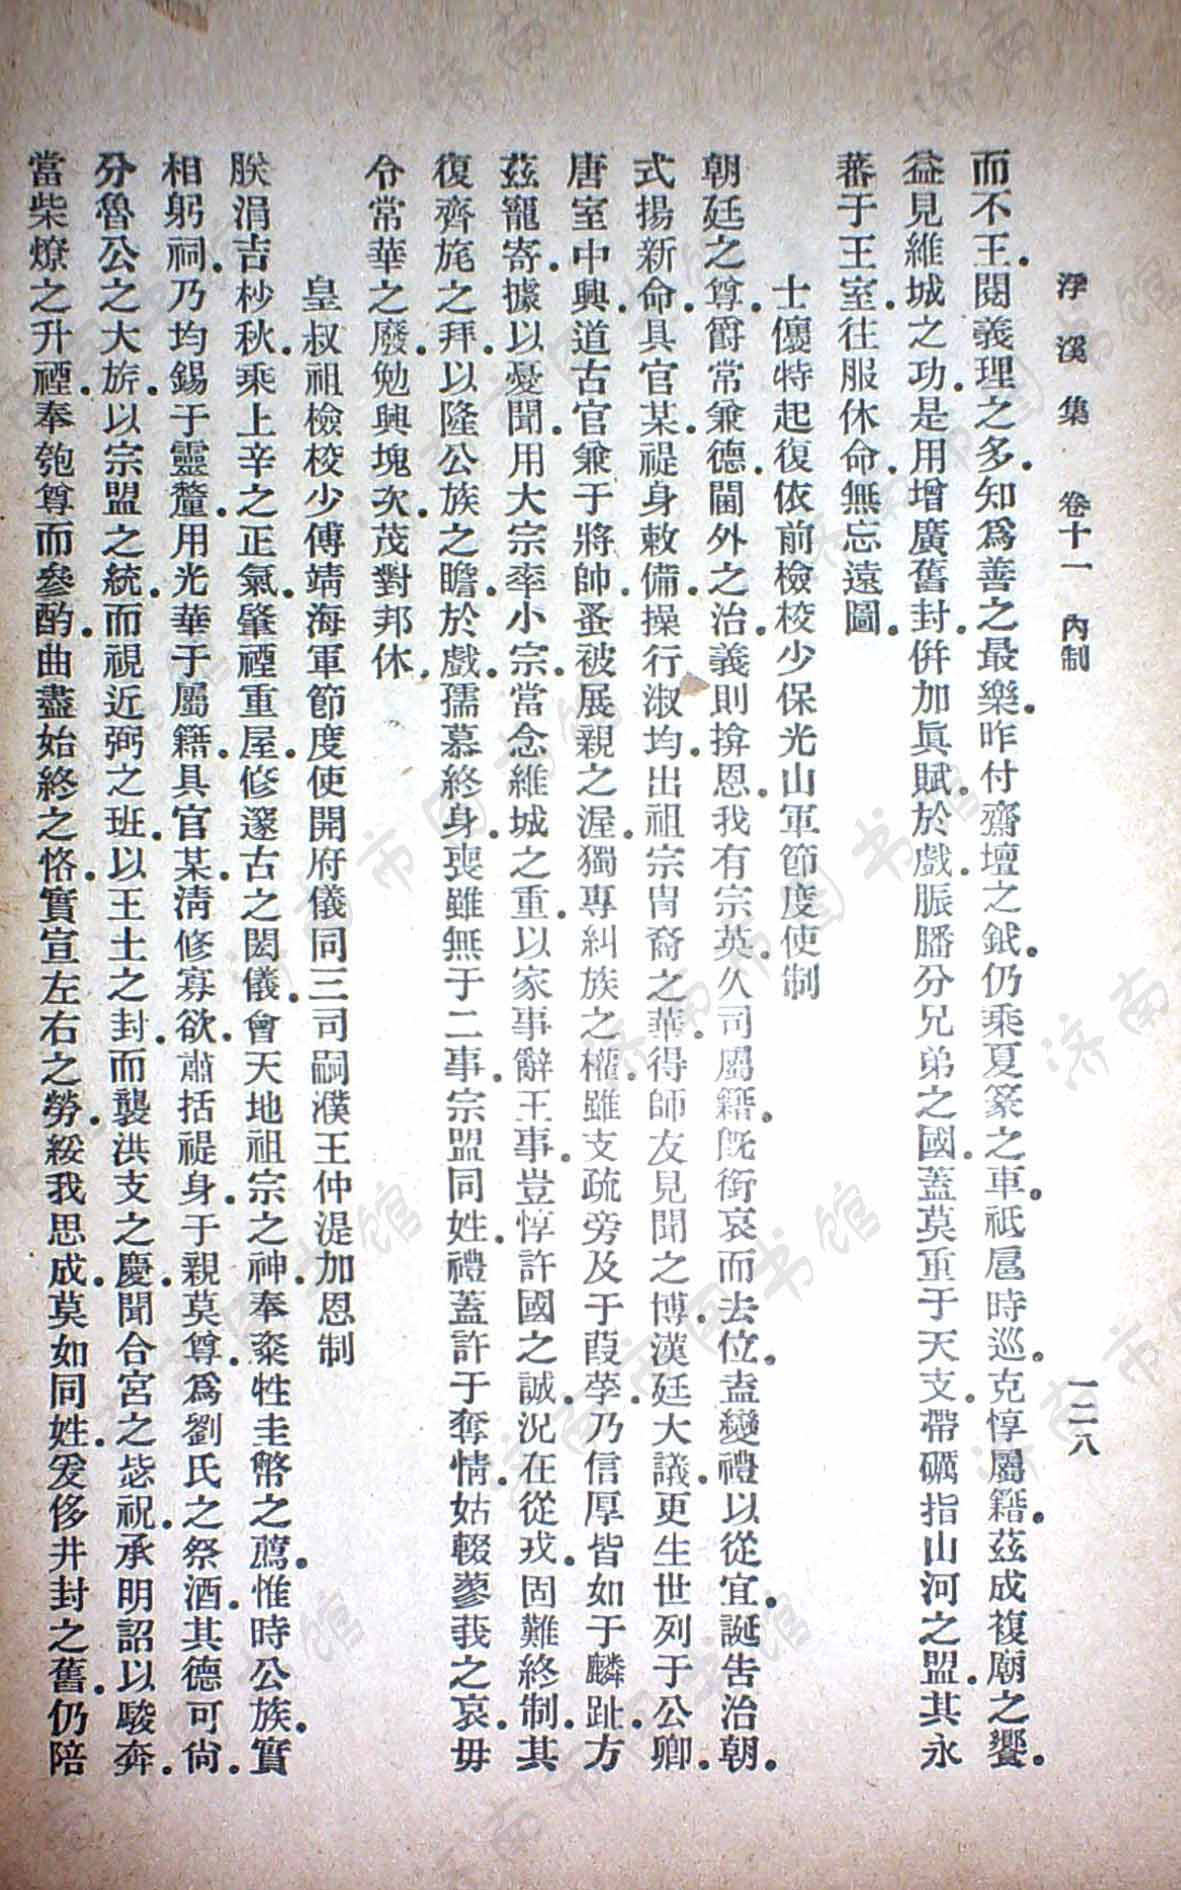 浮溪集 卷十一 內制 一二八
而不王。閱義理之多。知爲善之最樂。昨付齋壇之鉞。仍乘夏篆之車。祇扈時巡。克惇屬籍。茲成複廟之饗。
益見維城之功。是用增廣舊封。倂加眞賦。於戲。脤膰分兄弟之國。蓋莫重于天支。帶礪指山河之盟。其永
蕃于王室。往服休命。無忘遠圖。
士㒟特起復依前檢校少保光山軍節度使制
朝廷之尊。爵常兼德。閫外之治。義則揜恩。我有宗英。久司屬籍。旣銜哀而去位。盍變禮以從宜。誕告治朝。
式揚新命。具官某。禔身敕備。操行淑均。出祖宗冑裔之華。得師友見聞之博。漢廷大議。更生世列于公卿。
唐室中興。道古官兼于將帥。蚤被展親之渥。獨專糾族之權。雖支疏旁及于葭莩。乃信厚皆如于麟趾。方
茲寵寄。據以憂聞。用大宗率小宗。當念維城之重。以家事辭王事。豈惇許國之誠。況在從戎。固難終制。其
復齊旄之拜。以隆公族之瞻。於戲。孺慕終身。喪雖無于二事。宗盟同姓。禮蓋許于奪情。姑輟蓼莪之哀。毋
令常華之廢。勉興塊次。茂對邦休。
皇叔祖檢校少傅靖海軍節度使開府儀同三司嗣濮王仲湜加恩制
朕涓吉杪秋。乘上辛之正氣。肇禋重屋。修邃古之閎儀。會天地祖宗之神。奉粢牲圭幣之薦。惟時公族。實
相躬祠。乃均錫于靈釐。用光華于屬籍。具官某。淸修寡欲。肅括禔身。于親莫尊。爲劉氏之祭酒。其德可尙。
分魯公之大旂。以宗盟之統。而視近弼之班。以王土之封。而襲洪支之慶。聞合宮之毖祝。承明詔以駿奔。
當柴燎之升禋。奉匏尊而參酌。曲盡始終之恪。實宣左右之勞。綏我思成。莫如同姓。爰侈井封之舊。仍陪